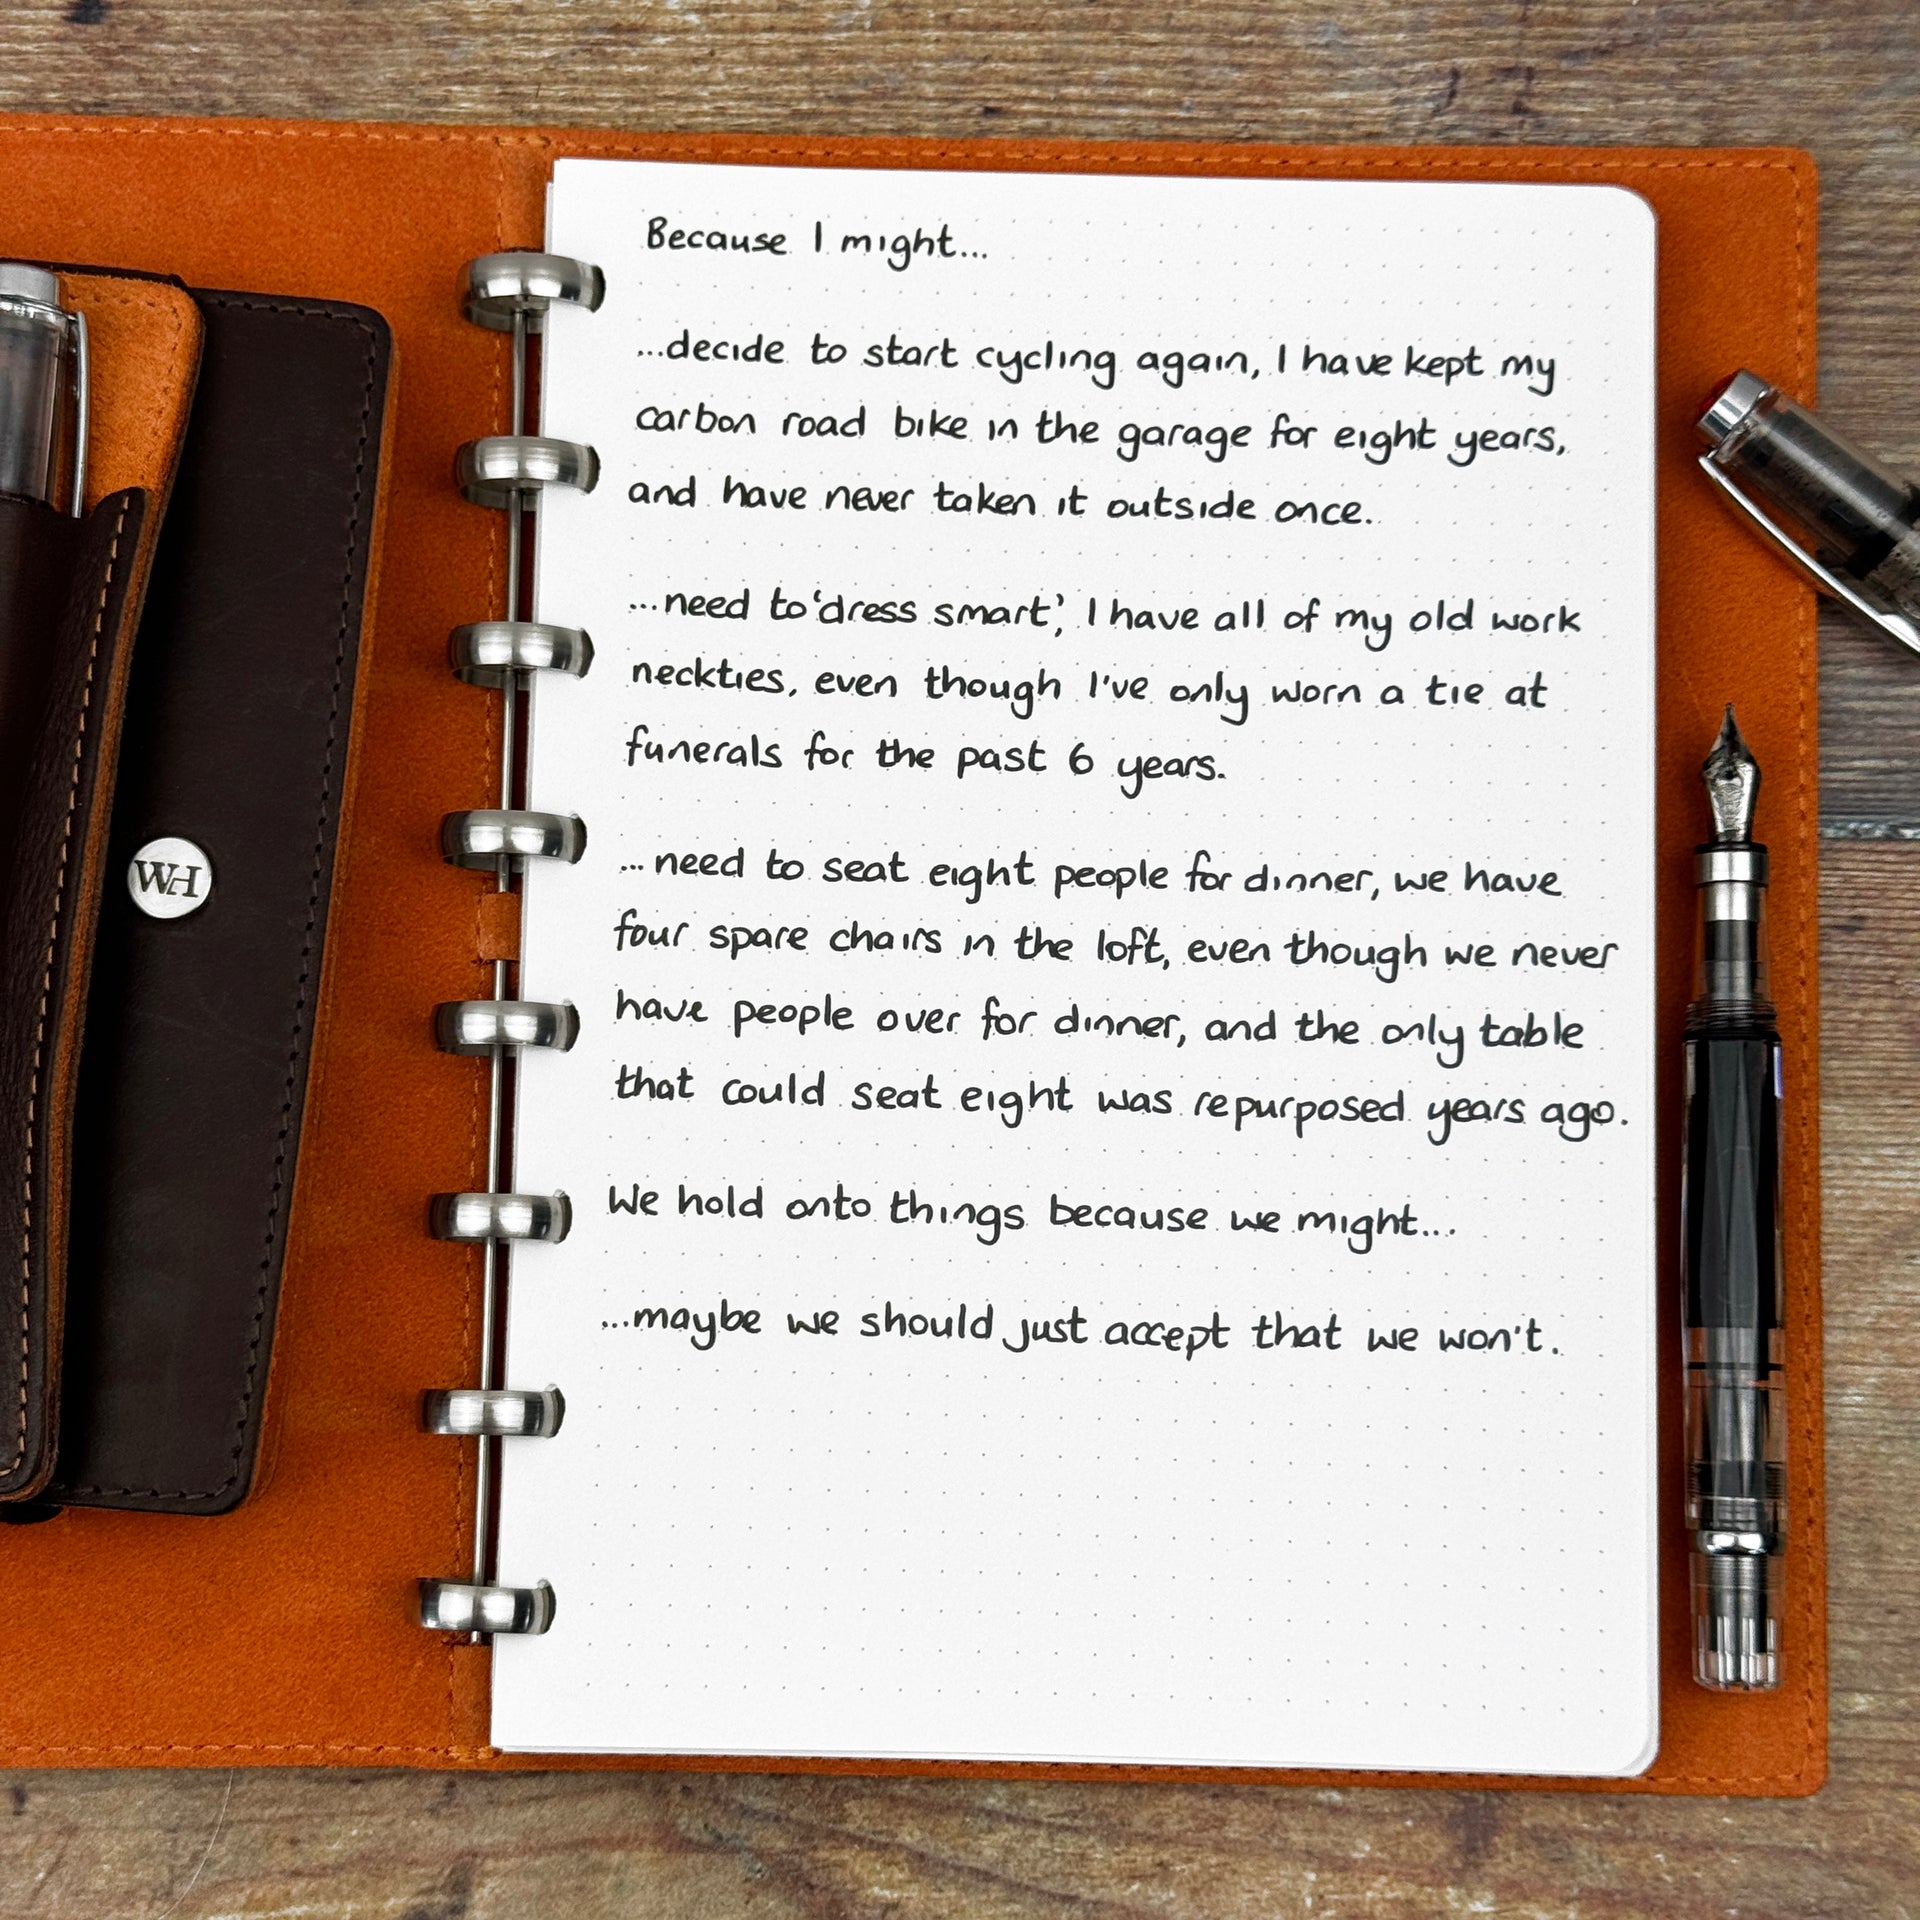 Because I might...
...decide to start cycling again, I have kept my
carbon road bike in the garage for eight years,
and have never taken it outside once.
...need to 'dress smart', I have all of my old work
neckties, even though I've only worn a tie at
funerals for the past 6 years.
...need to seat eight people for dinner, we have
four spare chairs in the loft, even though we never
have people over for dinner, and the only table
that could seat eight was repurposed years ago.
We hold onto things because we might...
...maybe we should just accept that we won't.
WH